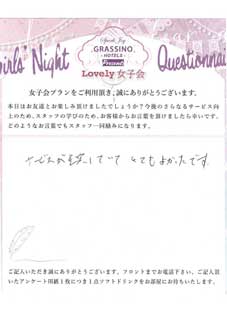 Girls' Night Questionnai
Spark Joy
GRASSINO
HOTELS
Present
Lovely 女子会
女子会プランをご利用頂き、誠にありがとうございます。
本日はお友達とお楽しみ頂けましたでしょうか?今後のさらなるサービス向
上のため、スタッフの学びのため、お客様からお言葉を頂けましたら幸いです。
どのようなお言葉でもスタッフ一同励みになります。
していて とてもよかったです。
ご記入いただき誠にありがとうございます。フロントまでお電話下さい。ご記入頂
いたアンケート用紙1枚につき1点ソフトドリンクをお部屋にお持ちいたします。